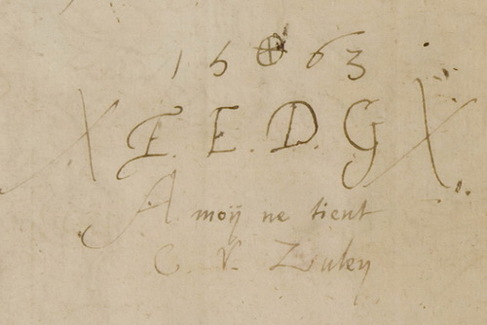 15 63
X E. E. D. G X
A moÿ ne tient
C. V. Zuley